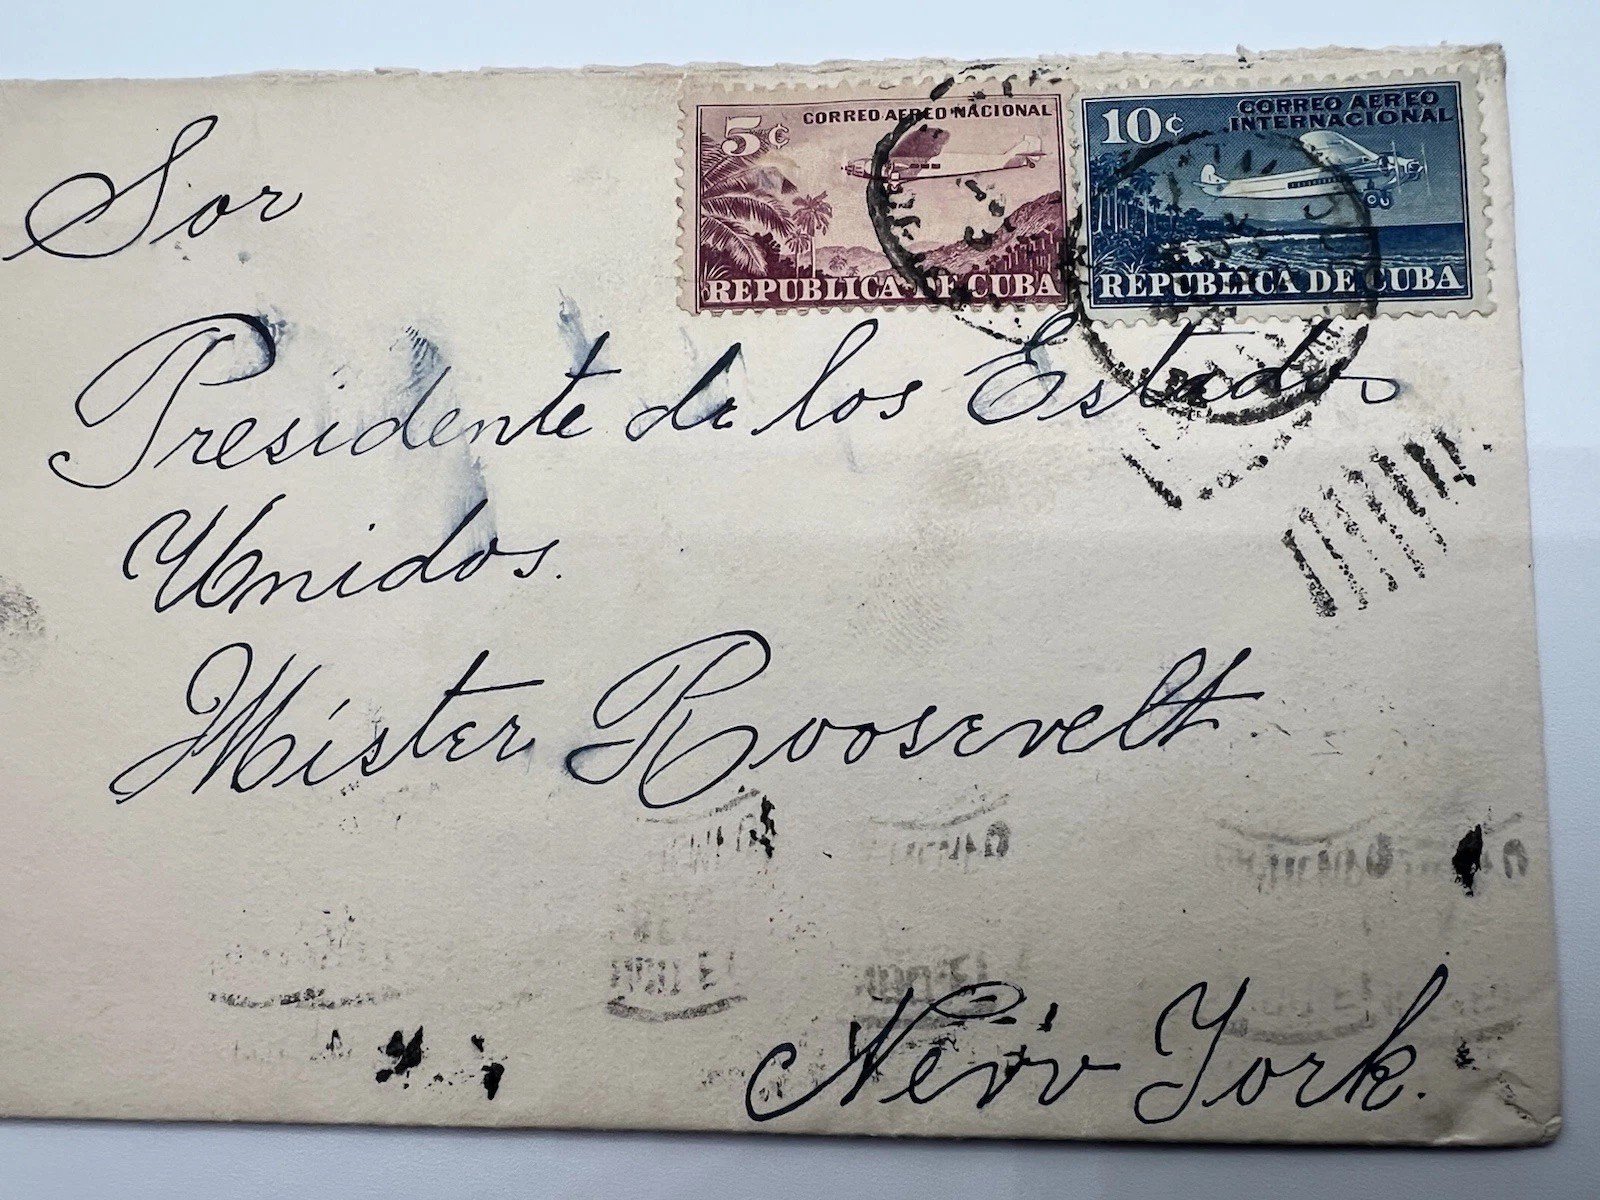 5¢ CORREO AEREO NACIONAL
REPUBLICA DE CUBA
10¢ CORREO AEREO
INTERNACIONAL
REPUBLICA DE CUBA
Sor
Presidente de los Estados
Unidos.
Míster Roosevelt
New York.